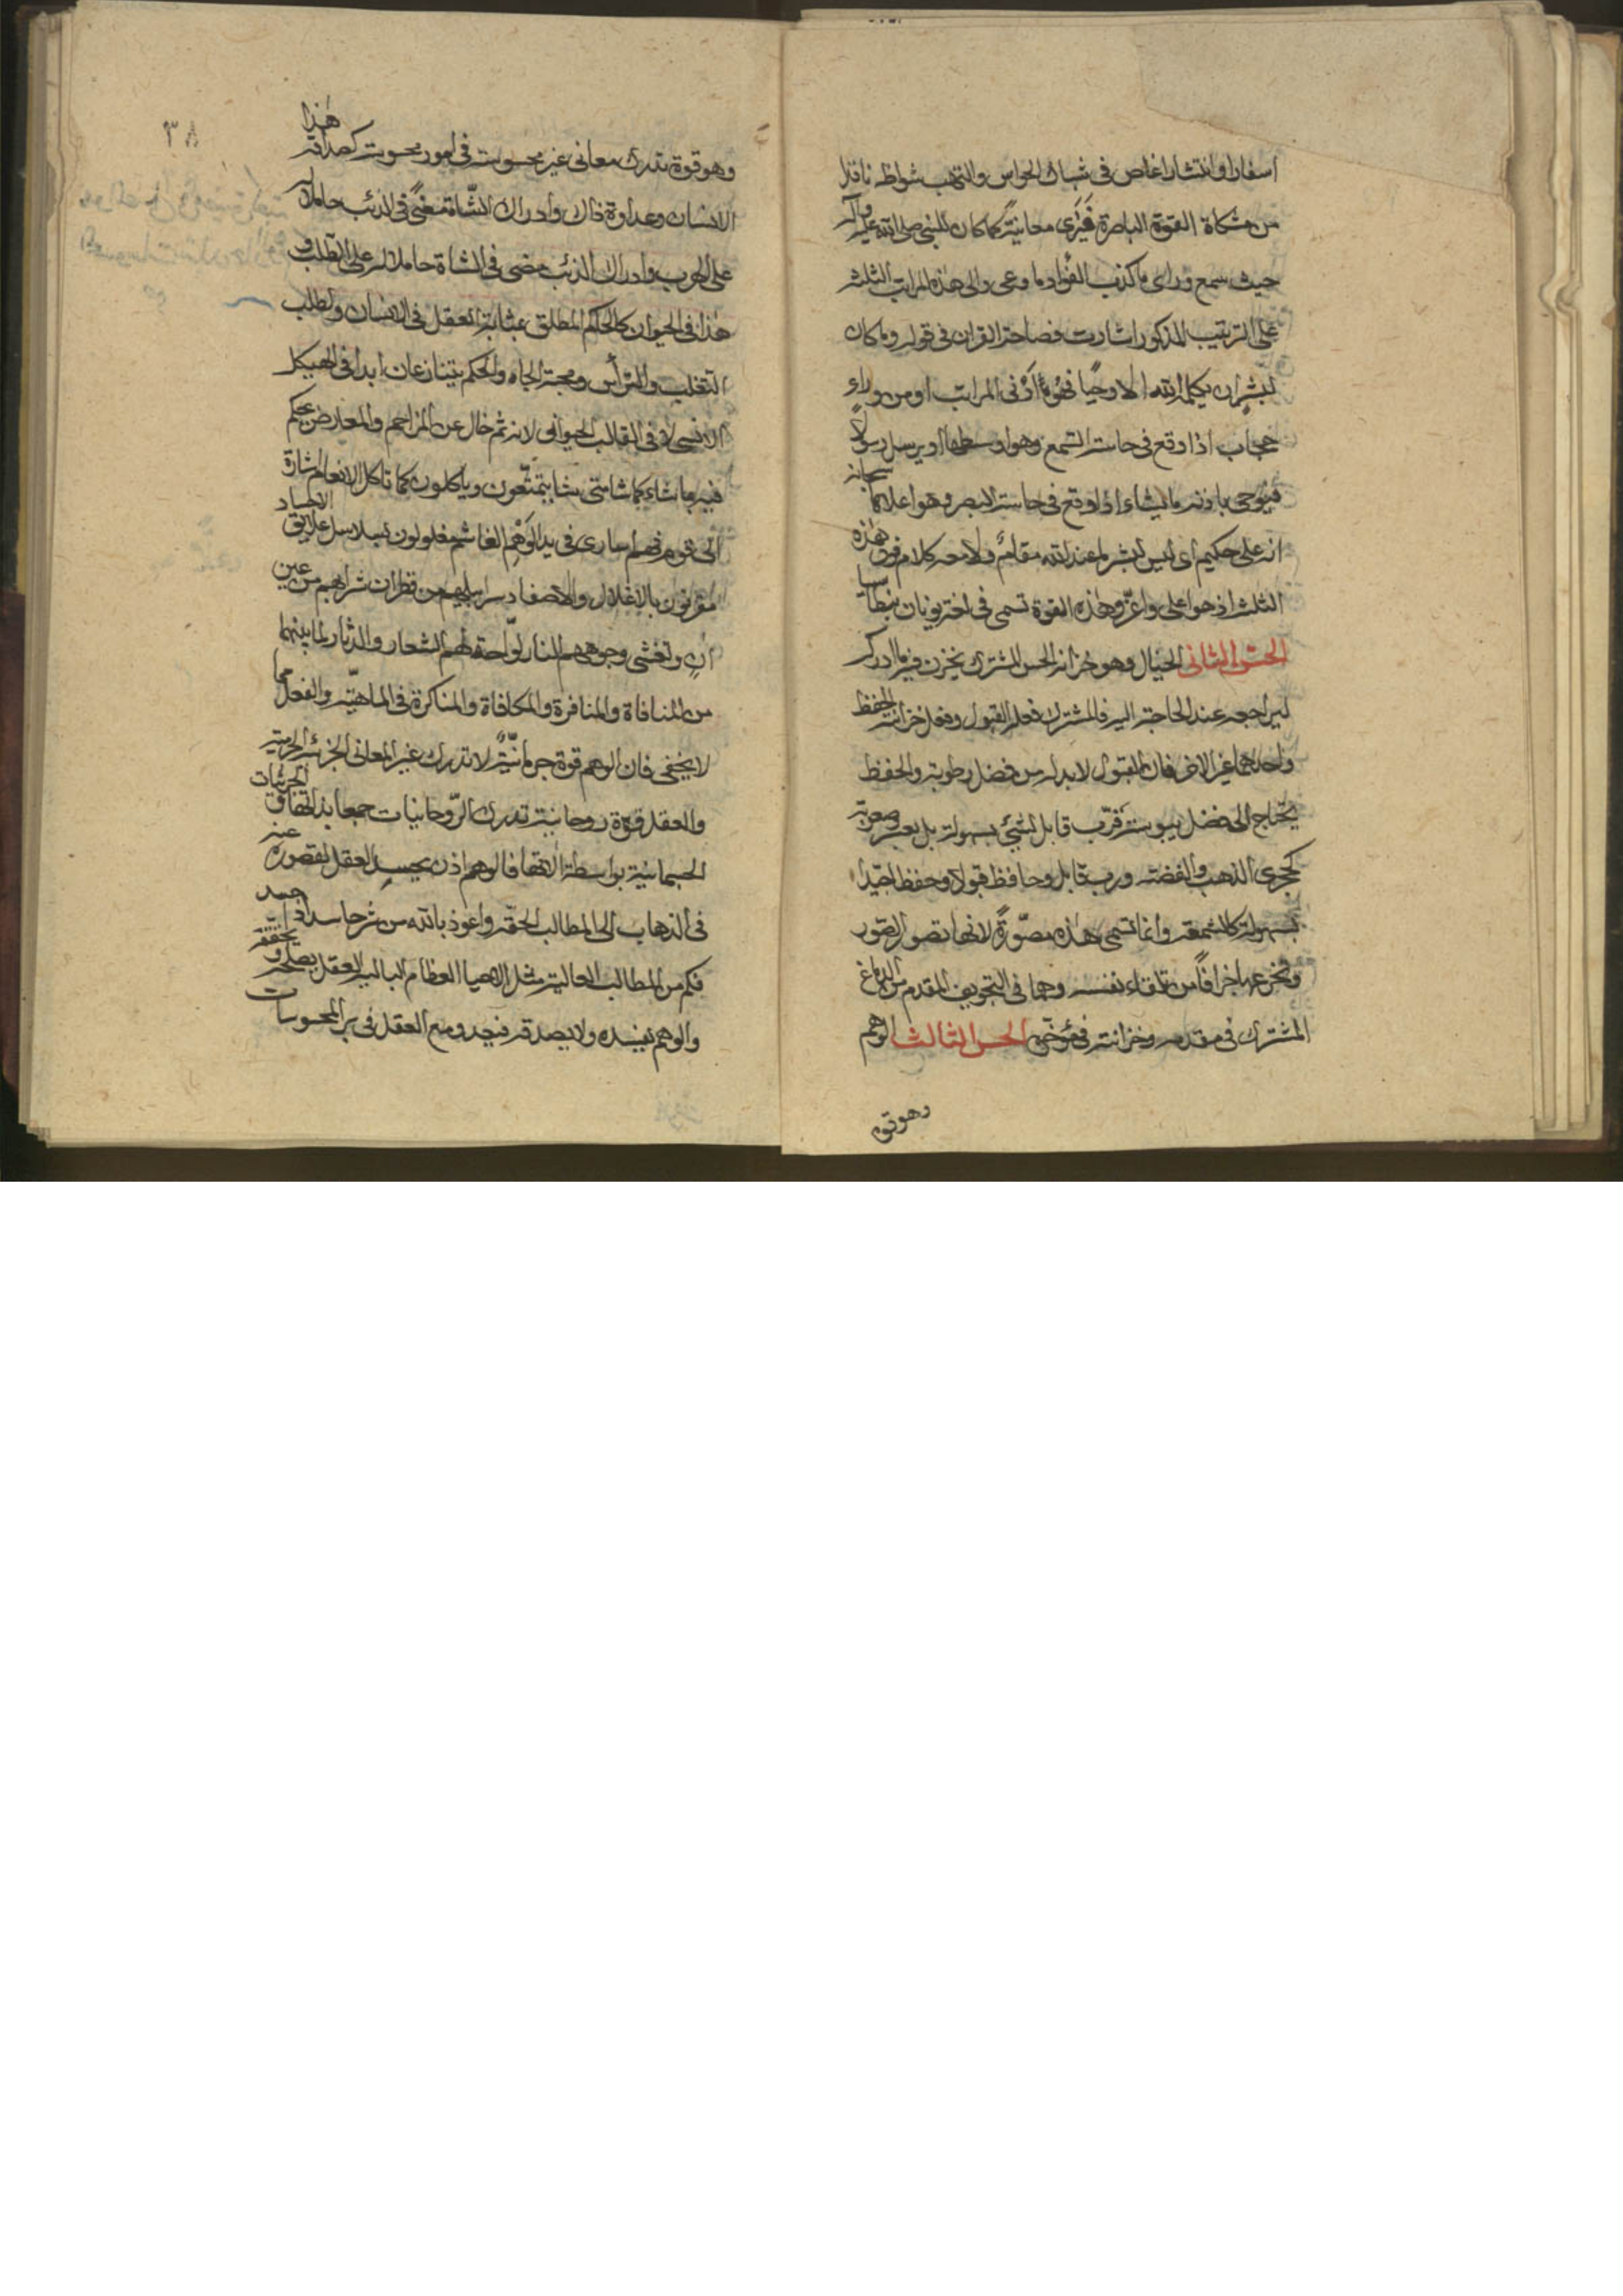 اسفارا وانتشارا غاص فى شباك الحواس والتهب شواظه نافذا
من مشكاة القوة الباصرة فيَرى معاينةً كما كان للنبى صلى الله عليه وآله
حيث سمع وراى ما كذب الفؤاد ما وعى والى هذه المراتب الثلث
على الترتيب المذكور اشارت فصاحة القران فى قوله وما كان
لبشر ان يكلمه الله الا وحيًا فهو أدنى المراتب او من وراء
حجاب اذا وقع فى حاسة السمع وهو اوسطها او يرسل رسولًا
فيوحى باذنه ما يشاء اذا وقع فى حاسة البصر وهو اعلاها سبحانه
انه على حكيم اى ليس لبشر عند الله مقام ولا معه كلام فوق هذه
الثلث اذ هو اعلى واعزّ وهذه القوة تسمى فى لغة يونان بنطاسيا
الحسّ الثانى الخيال وهو خزانة الحس المشترك يخزن فيه ما ادركه
ليراجعه عند الحاجة اليه فالمشترك فعله القبول وفعل خزانته الحفظ
واحدهما غير الاخر فان القبول لا بد له من فضل رطوبة والحفظ
يحتاج الى فضل يبوسة فرُبّ قابل لشيئ بسهولة بل بعسر وصعوبة
كحجرى الذهب والفضة ورب قابل وحافظ قبولا وحفظا جيّدا
بسهولة كالشمعة وانما تسمى هذه مصوّرةً لانها تصور الصور
وتخترعها جزافًا من تلقاء نفسه وهما فى التجويف المقدم من الدماغ
المشترك فى مقدمه وخزانته فى مؤخّره الحس الثالث الوهم
وهو قوة
٣٨
وهو قوة تدرك معانى غير محسوسة فى امور محسوسة كصداقة هذا
الانسان وعداوة ذاك وادراك الشّاة معنًى فى الذئب حاملا له
على الهرب وادراك الذئب معنى فى الشاة حاملا له على الطلب و
هذا فى الحيوان كالحاكم المطلق بمثابة العقل فى الانسان ولطلب
التغلب والترأّس ومحبة الجاه والحكم يتنازعان ابدا فى الهيكل
الانسى لا فى القالب الحيوانى لانه ثم خال عن المزاحم والمعارض يحكم
فيه ما شاء كما شا متى شا يتمتّعون وياكلون كما تاكل الانعام اشارة
الى قوم هم اسارى فى يد الوَهْم الغاشم مغلولون بسلاسل علايق الاجساد
مقرنون بالاغلال والاصفاد سرابيلهم من قطران شرابهم من عين
انٍ وتغشى وجوههم النار لوّاحة لهم الشعار والدثار لما بينهما
من المنافاة والمنافرة والمكافاة والمناكرة فى الماهيّة والفعل مما
لا يخفى فان الوهم قوة جرمانيّة لا تدرك غير المعانى الجزئية الجرمية
والعقل قوة روحانية تدرك الرّوحانيات جمعا بذاتها والجزئيات
الجسمانية بواسطة آلاتها فالوهم اذن يحسد العقل لقصوره عنه
فى الذهاب الى المطالب الحقة واعوذ بالله من شر حاسد اذا حسد
فكم من المطالب العالية مثل احياء العظام البالية العقل يصلحه و يحققه
والوهم يفسده ولا يصدقه فيعدو مع العقل فى بر المحسوسات